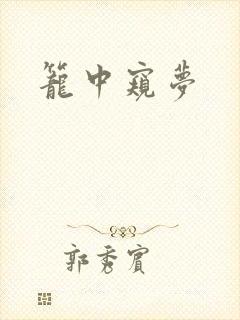 籠中窺夢
郭秀賓